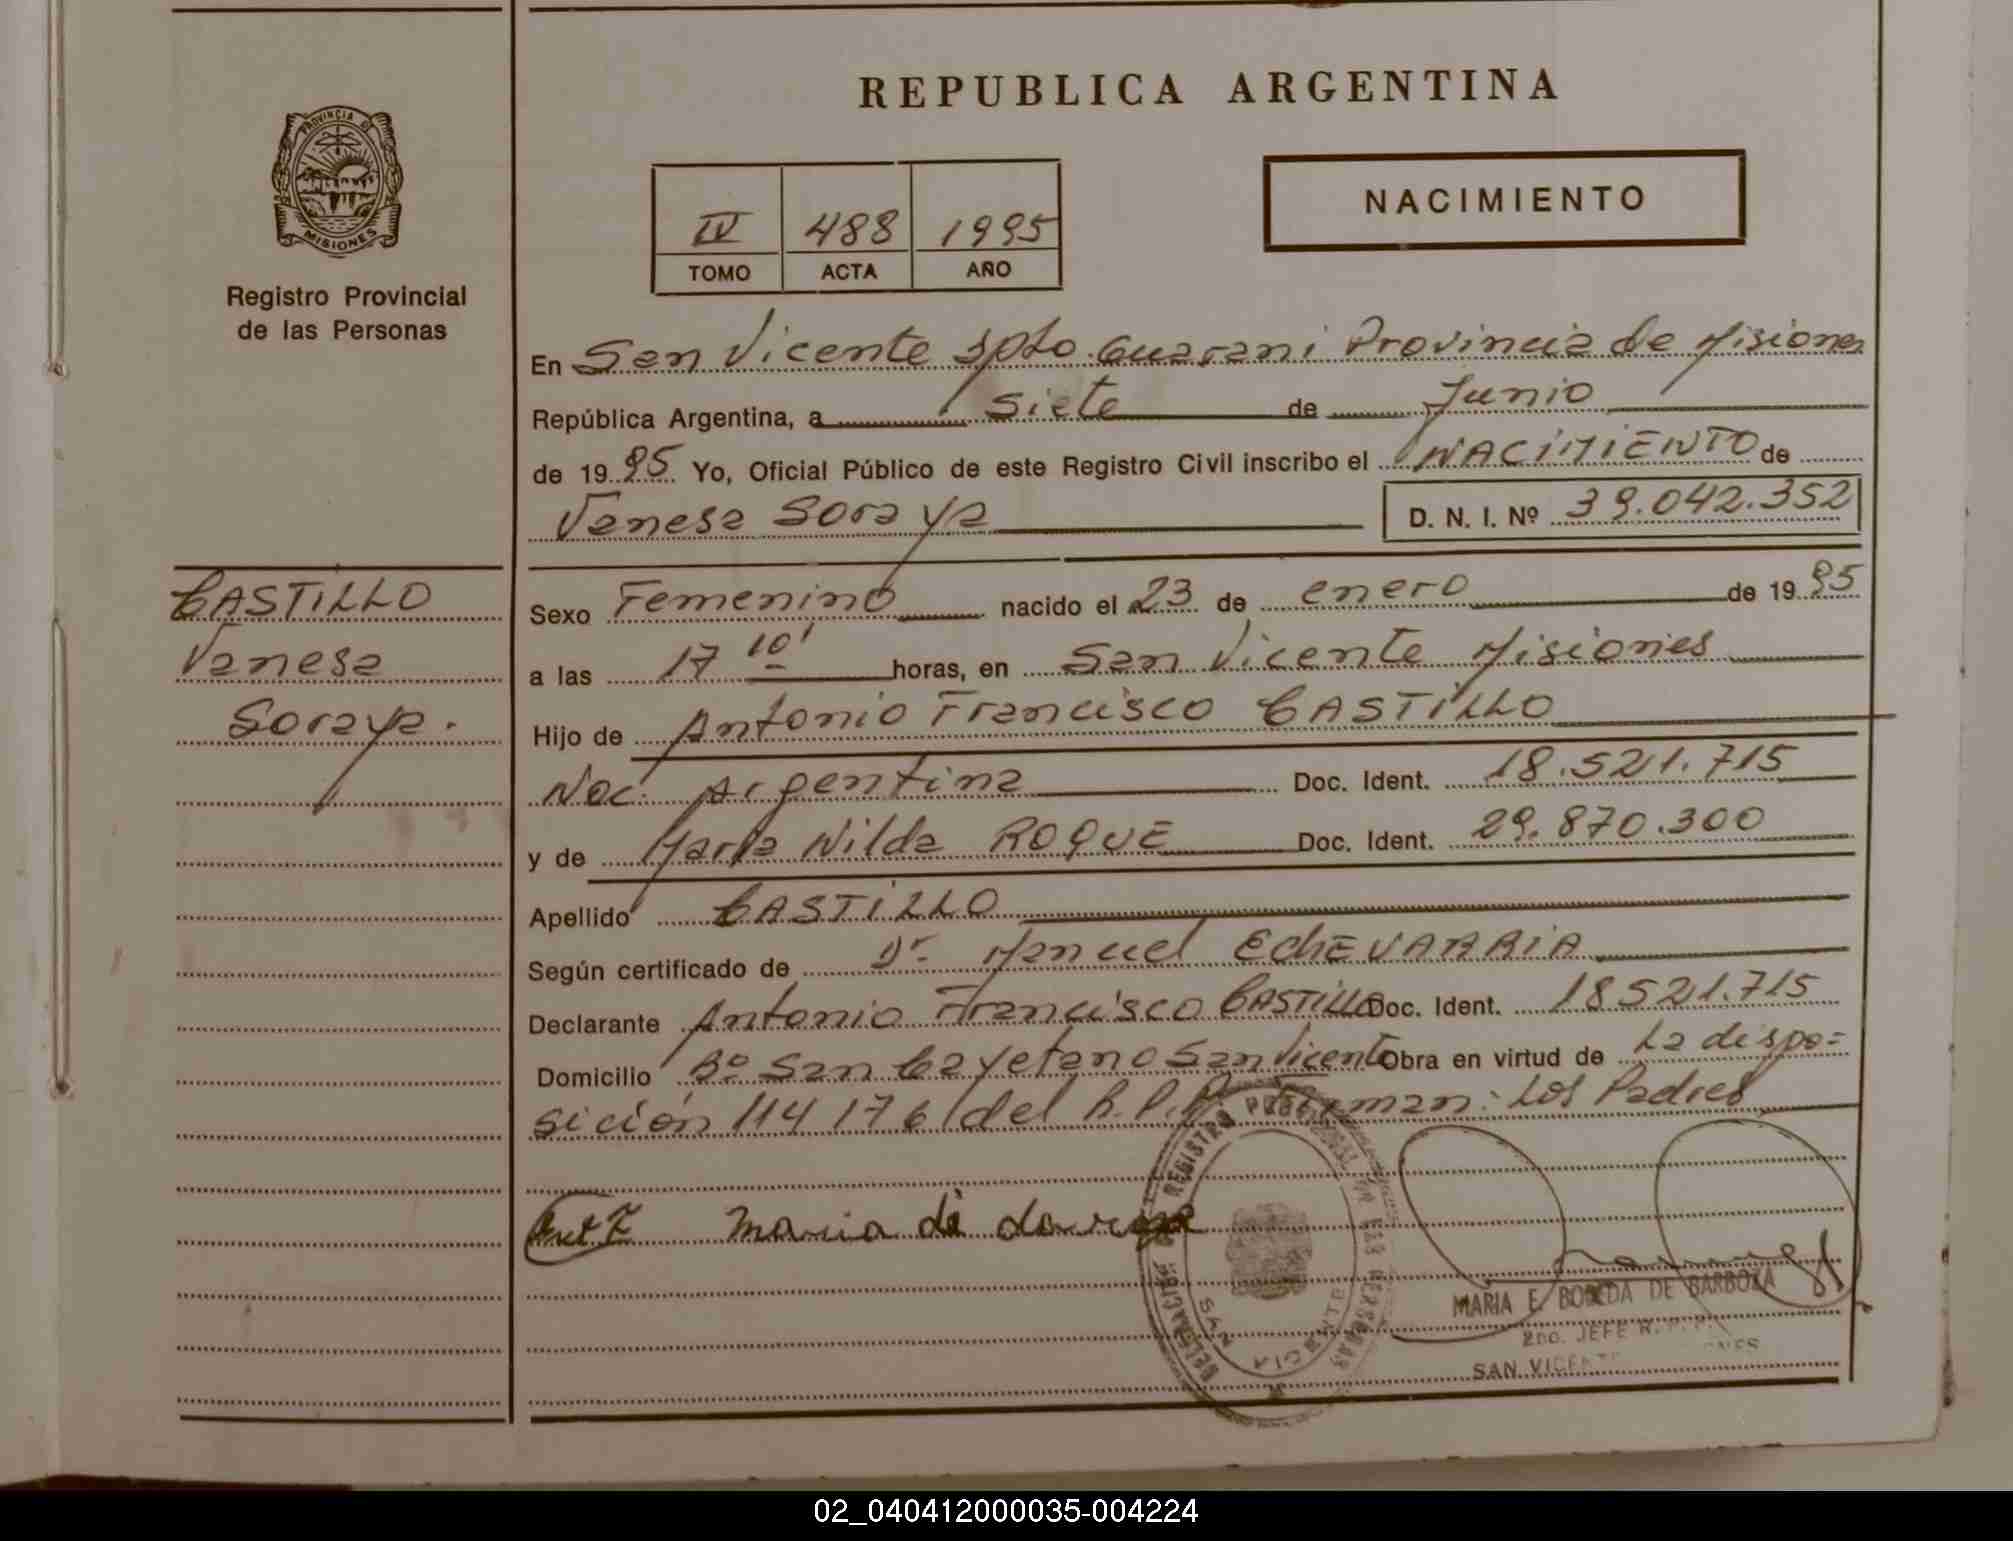 REPUBLICA ARGENTINA
PROVINCIA DE
MISIONES
Registro Provincial
de las Personas
NACIMIENTO
IV 488 1995
TOMO ACTA AÑO
En San Vicente Dpto Guarani Provincia de Misiones
República Argentina, a siete de Junio
de 1995 Yo, Oficial Público de este Registro Civil inscribo el NACIMIENTO de
Vanesa Soraya D. N. I. Nº 39.042.352
CASTILLO
Vanesa
Soraya.
Sexo Femenino nacido el 23 de enero de 1995
a las 17 10' horas, en San Vicente Misiones
Hijo de Antonio Francisco CASTILLO
Nac. Argentina Doc. Ident. 18.521.715
y de Maria Nilda ROQUE Doc. Ident. 29.870.300
Apellido CASTILLO
Según certificado de Dr. Manuel EChEVARRiA
Declarante Antonio Francisco CASTILLO Doc. Ident. 18521.715
Domicilio Bº San Cayetano San Vicente Obra en virtud de La dispo=
sición 114176/del R.P.P. Firman: Los Padres
Maria
REGISTRO DE LAS PERSONAS
DELEGACION
SAN VICENTE
MARIA E. BOBEDA DE BARBOZA
2do. JEFE R. P. P.
SAN VICENTE
02_040412000035-004224